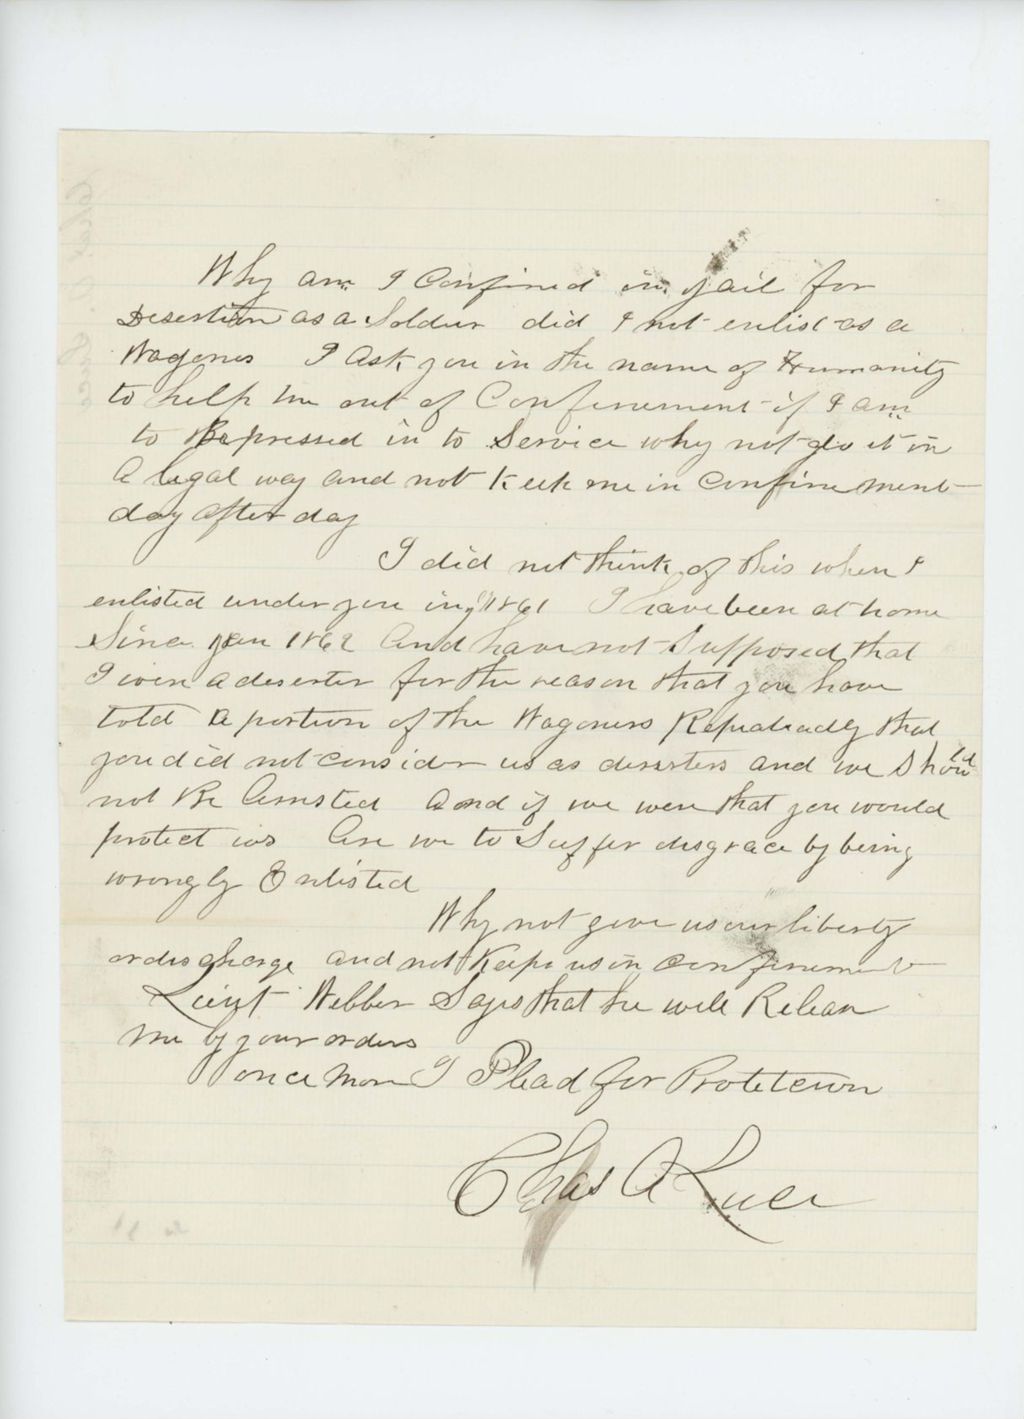 Why am I Confined in jail for
Desertion as a Soldier did I not enlist as a
Wagoner I ask you in the name of Humanity
to help me out of Confinement if I am
to Be pressed in to Service why not do it in
a legal way and not keek me in Confinement
day after day
I did not think of this when I
enlisted under you in 1861 I have been at home
Since jan 1862 and have not Supposed that
I were a deserter for the reason that you have
told a portion of the Wagoners Repeatadly that
you did not consider us as deserters and we Should
not Be Arrested and if we were that you would
protect us Are we to Suffer disgrace by being
wrongly Enlisted
Why not give us our liberty
or discharge and not Keep us in Confinement
Lieut Webber Says that he will Releas
me by your orders
once more I Plead for Protetcion
Chas A Luce